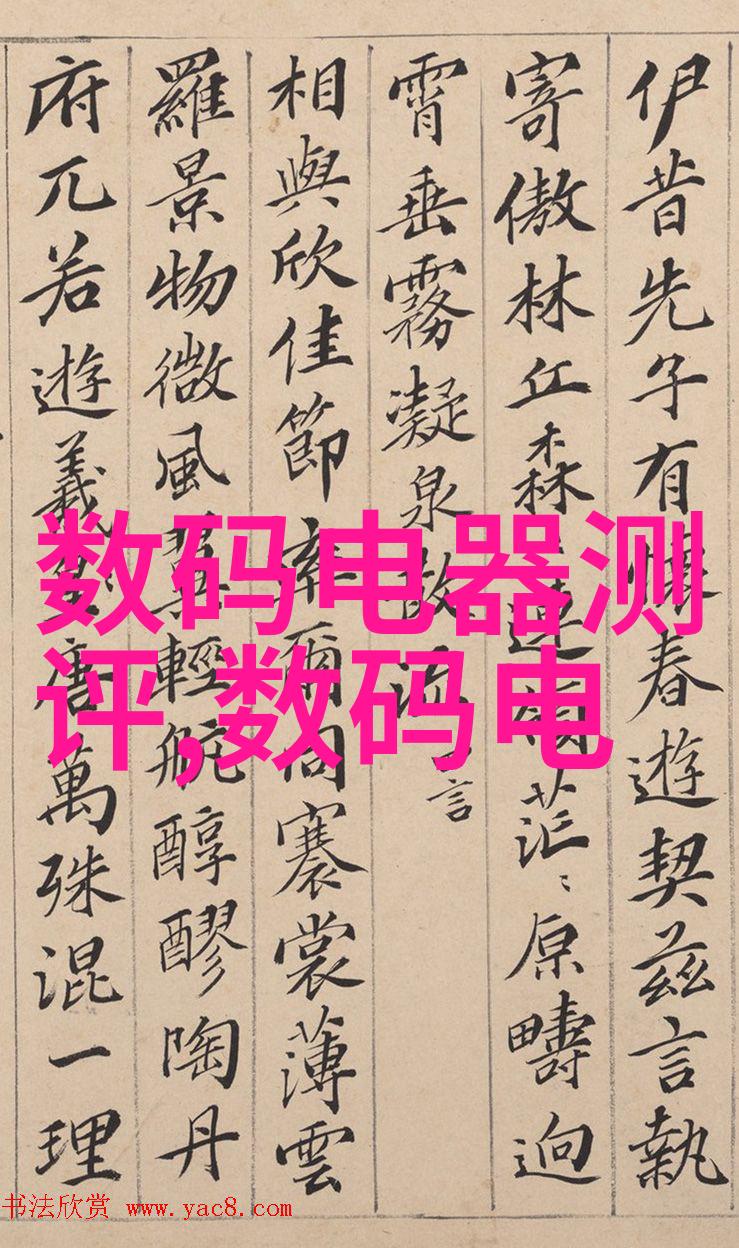 伊昔先子有懷春遊契茲言執
寄傲林丘森連領茫〻原疇逈
霄垂霧凝泉散流言
相與欣佳節率爾同褰裳薄雲
羅景物微風翼輕航醇醪陶丹
府兀若遊羲唐萬殊混一理
数码电器测
评,数码电
书法欣赏 www.yac8.com